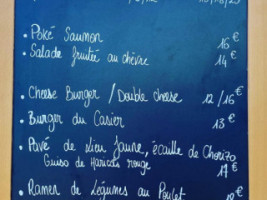 • Poké Saumon 16€
• Salade fruitée au chèvre 14€
• Cheese Burger / Double cheese 12/16€
• Burger du Casier 13€
• Pavé de Lieu Jaune, écaille de Chorizo
Guiso de Haricots rouge 17€
• Ramen de Légumes au Poulet